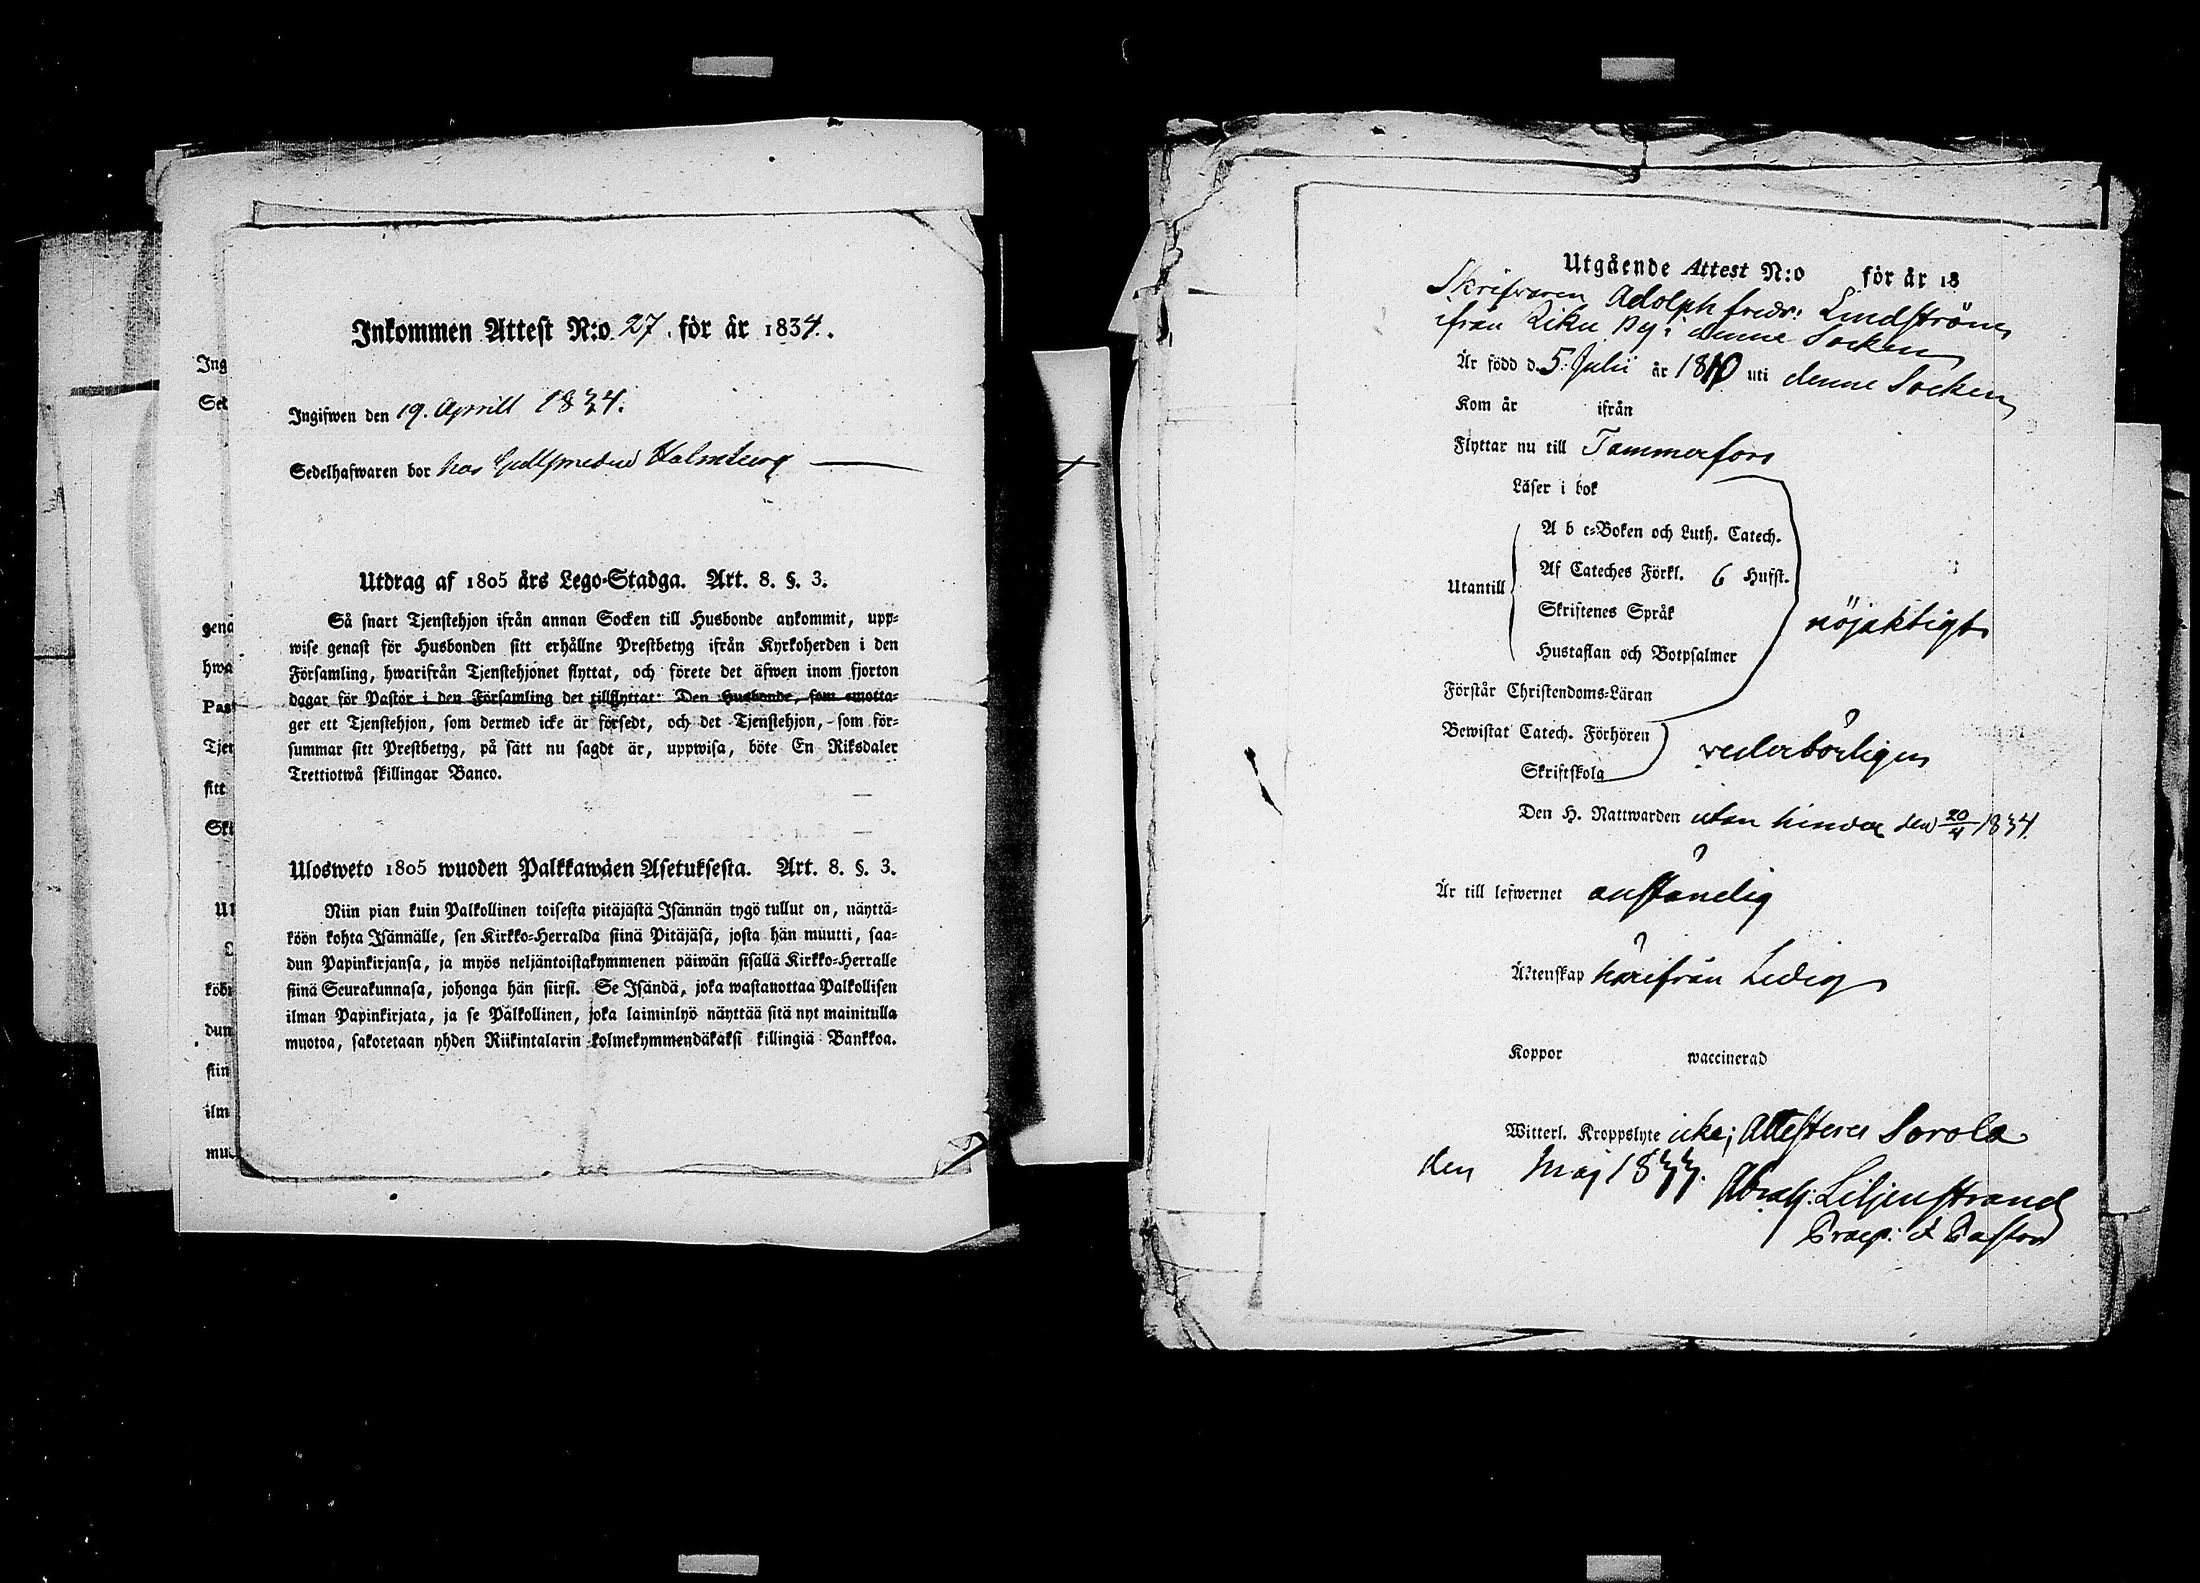 Inkommen Attest N:o 27. för år 1834.
Ingifwen den 19. Aprill 1834.
Sedelhafwaren bor hos Gullsmeden Holmberg
Utdrag af 1805 års Lego-Stadga. Art. 8. §. 3.
Så snart Tjenstehjon ifrån annan Socken till Husbonde ankommit, upp-
wise genast för Husbonden sitt erhållne Prestbetyg ifrån Kyrkoherden i den
Församling, hwarifrån Tjenstehjonet flyttat, och förete det äfwen inom fjorton
dagar för Pastor i den Församling det tillflyttat: Den Husbonde, som emotta-
ger ett Tjenstehjon, som dermed icke är försedt, och det Tjenstehjon, som för-
summar sitt Prestbetyg, på sätt nu sagdt är, uppwisa, böte En Riksdaler
Trettiotwå skillingar Banco.
Ulosweto 1805 wuoden Palkkawäen Asetuksesta. Art. 8. §. 3.
Niin pian kuin Palkollinen toisesta pitäjästä Isännän tygö tullut on, näyttä-
köön kohta Isännälle, sen Kirkko-Herralda siinä Pitäjäsä, josta hän muutti, saa-
dun Papinkirjansa, ja myös neljäntoistakymmenen päiwän sisällä Kirkko-Herralle
siinä Seurakunnasa, johonga hän siirsi. Se Isändä, joka wastanottaa Palkollisen
ilman Papinkirjata, ja se Palkollinen, joka laiminlyö näyttää sitä nyt mainitulla
muotoa, sakotetaan yhden Riikintalarin kolmekymmendäkaksi killingiä Bankkoa.
Ing
Sed
gena
hwa
Pas
Tjen
sitt
Ski
Ul
köö
dun
siin
ilm
muo
Utgående Attest N:o för år 18
Skrifvaren Adolph Fredr: Lindström
ifrån By i denne Socken
Är född d. 5. Julii år 1810 uti denne Socken
Kom år ifrån
Flyttar nu till Tammerfors
Läser i bok
A b c-Boken och Luth. Catech.
Af Cateches Förkl. 6 Hufst.
Utantill
Skriftenes Språk nöjaktigt
Hustaflan och Botpsalmer
Förstår Christendoms-Läran
Bewistat Catech. Förhören vederbörligen
Skriftskola
Den H. Nattwarden utan hinder den 20/4 1834.
Är till lefwernet anständig
Ägtenskap härifrån Ledig
Koppor waccinerad
Witterl. Kroppslyte icke; Attesterar Sorola
den Maj 1833. Abrah: Liljenstrand
Praep: & Pastor